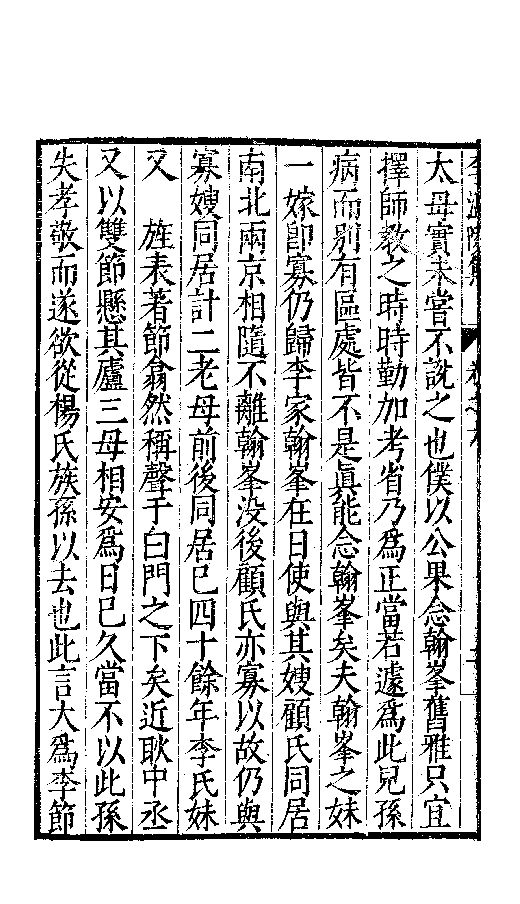 太母實未嘗不說之也僕以公果念翰峯舊雅只宜
擇師教之時時勤加考省乃爲正當若遽爲此兒孫
病而別有區處皆不是眞能念翰峯矣夫翰峯之妹
一嫁卽寡仍歸李家翰峯在日使與其嫂顧氏同居
南北兩京相隨不離翰峯没後顧氏亦寡以故仍與
寡嫂同居計二老母前後同居已四十餘年李氏妹
又　旌表著節翕然稱聲于白門之下矣近耿中丞
又以雙節懸其廬三母相安爲日已久當不以此孫
失孝敬而遂欲從楊氏族孫以去也此言大爲李節